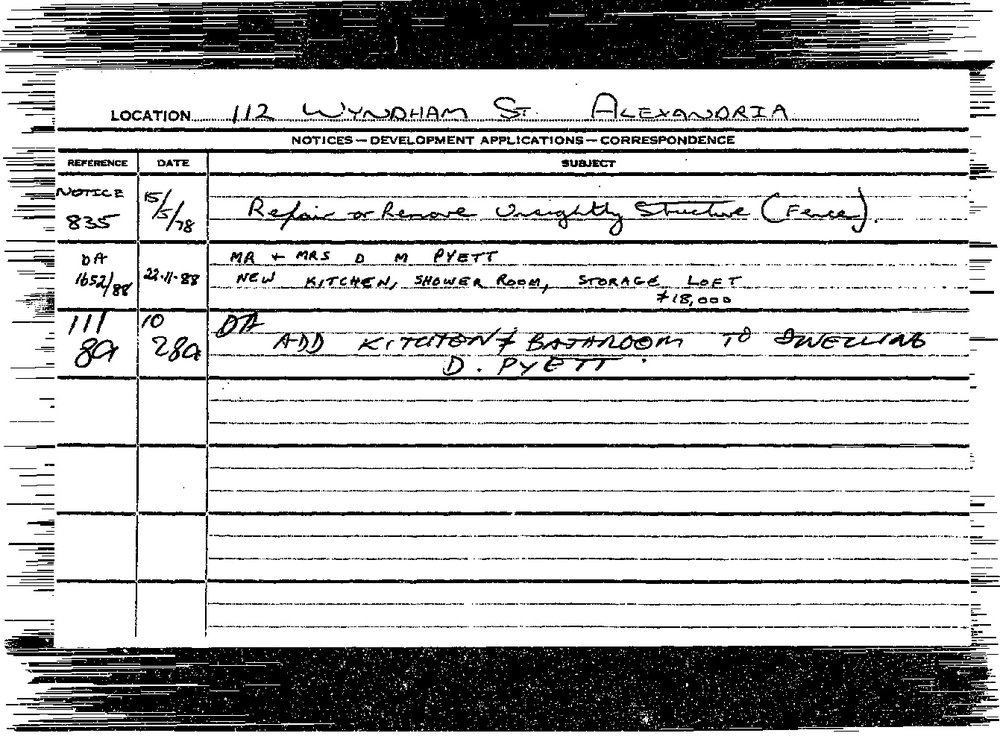 LOCATION 112 WYNDHAM ST. ALEXANDRIA
NOTICES — DEVELOPMENT APPLICATIONS — CORRESPONDENCE
REFERENCE DATE SUBJECT
NOTICE 835 15/5/78 Repair or Remove Unsightly Structure (Fence).
DA 1652/88 22-11-88 MR + MRS D M PYETT
NEW KITCHEN, SHOWER ROOM, STORAGE LOFT
$18,000
111 10 DA
89 ADD KITCHEN & BATHROOM TO DWELLING
D. PYETT